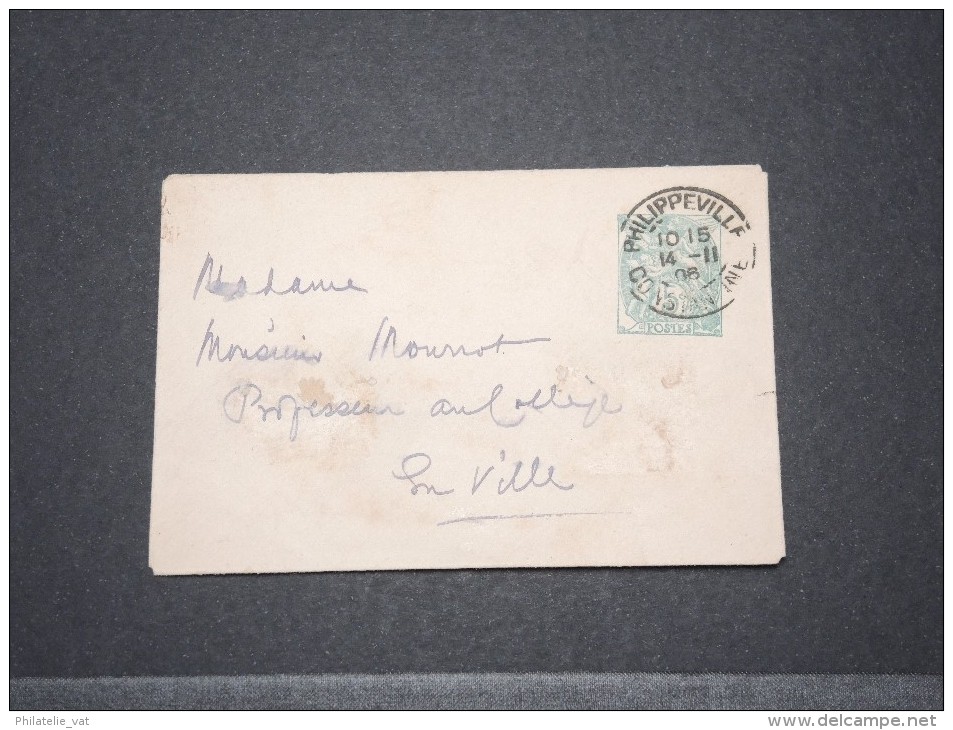 PHILIPPEVILLE
10 15
14 -11
06
CONSTANTINE
POSTES
Madame
Monsieur Mournot
Professeur au Collège
En Ville
Philatelie_vat
delcampe.net